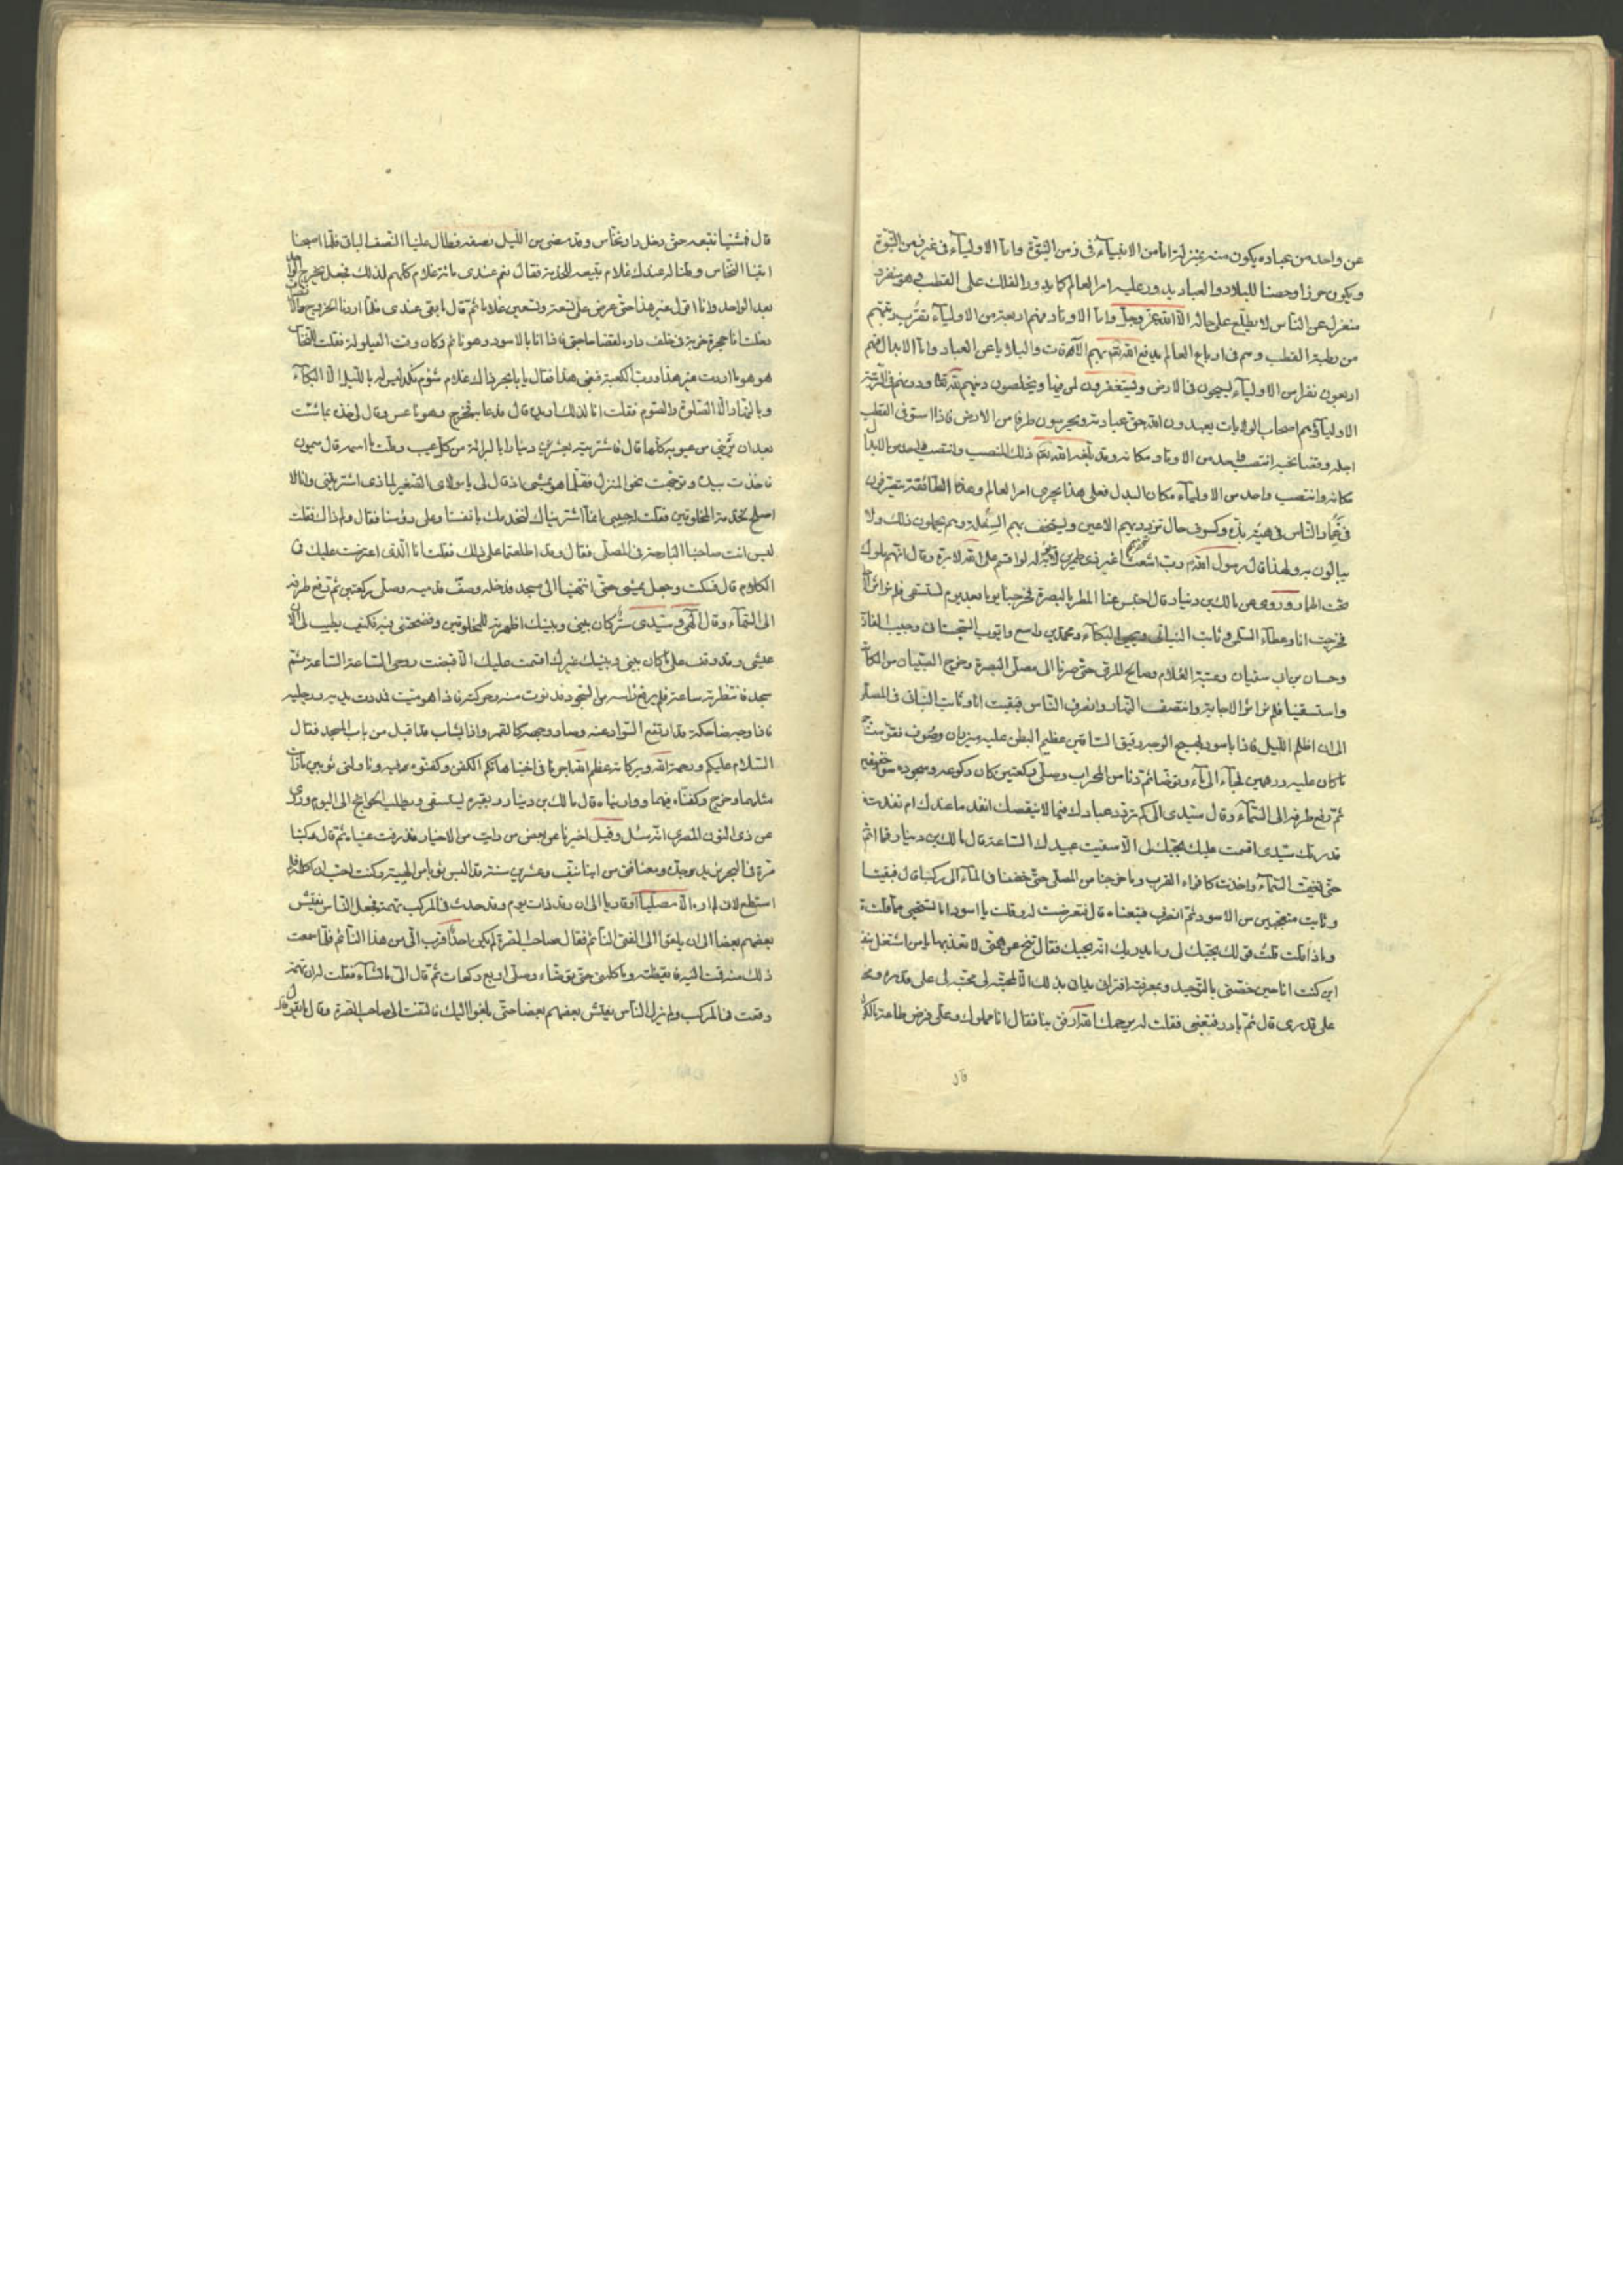 عن واحد من عباده يكون منه بمنزلة اما من الانبياء فى زمن النبوة واما الاولياء فى غير زمن النبوة
ويكون حرزا وحصنا للبلاد والعباد يدور عليه امر العالم كما يدور الفلك على القطب فهو منفرد
منعزل عن الناس لا يطلع على حاله الا الله عز وجل واما الاوتاد فهم اربعة من الاولياء تقرب رتبتهم
من رطبة القطب وهم فى ارباع العالم يدفع الله بهم الآفات والبلايا عن العباد واما الابدال فهم
اربعون نفرا من الاولياء يسيحون فى الارض ويستغفرون لمن فيها ويخلصون دينهم لله تعالى ودونهم فى الرتبة
الاولياء وهم اصحاب الولايات يعبدون الله حق عبادته ويحرسون طرفا من الارض فاذا استوفى القطب
اجله وقضا نحبه انتصب واحد من الاوتاد مكانه وقد بلغه الله ذلك المنصب وانتصب واحد من الابدال
مكانه وانتصب واحد من الاولياء مكان البدل فعلى هذا يجرى امر العالم وهذه الطائفة
فى غمار الناس فى هيئة بذة وكسوف حال تزدريهم الاعين ويستخف بهم السفلة وهم يحملون ذلك ولا
يبالون به ولهذا قال رسول الله رب اشعث اغبر ذى طمرين لا يؤبه له لو اقسم على الله لابره وقال انهم ملوك
تحت اطمار وروى عن مالك بن دينار قال احتبس عنا المطر بالبصرة فخرجنا يوما بعد يوم نستسقى فلم نر اثر
فخرجت انا وعطاء السلمى وثابت البنانى ويحيى البكاء ومحمد بن واسع وايوب السختيانى وحبيب
وحسان بن ابى سنان وعتبة الغلام وصالح المرى حتى صرنا الى مصلى البصرة وخرج الصبيان من
واستسقينا فلم نر اثر الاجابة وانتصف النهار وانصرف الناس فبقيت انا وثابت البنانى فى المصلى
الى ان اظلم الليل فاذا باسود مليح الوجه رقيق الساقين عظيم البطن عليه ميزران من صوف فقومت
ما كان عليه بدرهمين فجاء الى ماء وتوضأ ثم دنا من المحراب وصلى ركعتين كان ركوعه وسجوده
ثم رفع طرفه الى السماء وقال سيدى الى كم تردد عبادك فيما لا ينقصك انفد ما عندك ام نفدت
قدرتك سيدى اقسمت عليك بحبك لى الا سقيت عبيدك الساعة قال مالك بن دينار فما اتم
حتى تغيمت السماء واخذت كافواه القرب وما خرجنا من المصلى حتى خضنا فى الماء الى ركبنا قال فبقينا
وثابت متعجبين من الاسود ثم انصرف فتبعناه قال فتعرضت له وقلت يا اسود اما تستحيى مما قلت
وماذا قلت قلت قولك بحبك لى وما يدريك انه يحبك فقال تنح عن همتى لا تعذبها يا من اشتغل
اين كنت انا حين خصنى بالتوحيد وبمعرفته افترانى بدانى بذلك الا لمحبته لى محبته لى على قدره
على قدرى قال ثم بادر فتبعنى فقلت له يرحمك الله ارفق بنا فقال انا مملوك وعلى فرض طاعة
قال
قال فمشينا نتبعه حتى دخل دار نخاس وقد مضى من الليل نصفه فطال علينا النصف الباقى فلما اصبحنا
اتينا النخاس وقلنا له عندك غلام تبيعه للخدمة فقال نعم عندى مائة غلام كلهم لذلك فجعل يخرج
بعد الواحد وانا اقول غير هذا حتى عرض على تسعة وتسعين غلاما ثم قال ما بقى عندى فلما اردنا الخروج
دخلت انا حجرة خربة فى خلف داره فاذا انا بالاسود وهو نائم وكان وقت القيلولة فقلت
هو هو ورب الكعبة فبعنى هذا فقال يا با يحيى ذاك غلام شؤم نكد ليس له بالليل الا البكاء
وبالنهار الا الصلوة والصوم فقلت انا لذلك اريده قال فدعا به فخرج وهو ناعس وقال لى خذه بما شئت
بعد ان تبرئنى من عيوبه كلها قال فاشتريته بعشرين دينارا بالبرائة من كل عيب وقلت ما اسمه قال ميمون
فاخذت بيده وتوجهت نحو المنزل فبينما هو يمشى اذ قال لى يا مولاى الصغير لماذا اشتريتنى وانا لا
اصلح لخدمة المخلوقين فقلت له حبيبى انما اشتريناك لنخدمك بانفسنا وعلى رؤسنا فقال ولم ذاك فقلت
اليس انت صاحبنا البارحة فى المصلى فقال وقد اطلعتما على ذلك فقلت انا الذى اعترضت عليك فى
الكلام قال فسكت وجعل يمشى حتى انتهينا الى مسجد فدخله وصف قدميه وصلى ركعتين ثم رفع طرفه
الى السماء وقال الهى وسيدى سر كان بينى وبينك اظهرته للمخلوقين وفضحتنى فيه فكيف يطيب لى الان
عيشى وقد وقف على ما كان بينى وبينك غيرك اقسمت عليك الا قبضت روحى الساعة الساعة ثم
سجد فانتظرته ساعة فلم يرفع راسه من السجود فدنوت منه وحركته فاذا هو ميت فمددت يديه ورجليه
فاذا وجه ضاحكة قد ارتفع السواد عنه وصار وجهه كالقمر واذا بشاب قد اقبل من باب المسجد فقال
السلام عليكم ورحمة الله وبركاته عظم الله اجرنا فى اخينا هاكم الكفن وكفنوه به وناولنى ثوبين ما رايت
مثلهما وخرج وكفناه فيهما وواريناه قال مالك بن دينار وبقبره يستسقى ويطلب الحوائج الى اليوم وروى
عن ذى النون المصرى انه سئل وقيل اخبرنا عن بعض من رايت من الاخيار فذرفت عيناه ثم قال ركبنا
مرة فى البحر نريد جدة ومعنا فتى من ابناء نيف وعشرين سنة قد البس ثوبا من الهيبة وكنت احب ان اكلمه فلم
استطع لانى لم اره الا مصليا او قاريا الى ان رقد ذات يوم وقد حدث فى المركب تهمة فجعل الناس يفتش
بعضهم بعضا الى ان بلغوا الى الفتى النائم فقال صاحب الصرة لم يكن احد اقرب الى من هذا النائم فلما سمعت
ذلك منه قمت اليه فايقظته وما كلمنى حتى توضاء وصلى اربع ركعات ثم قال الى ما تشاء فقلت له ان تهمة
وقعت فى المركب ولم يزل الناس يفتش بعضهم بعضا حتى بلغوا اليك فالتفت الى صاحب الصرة وقال